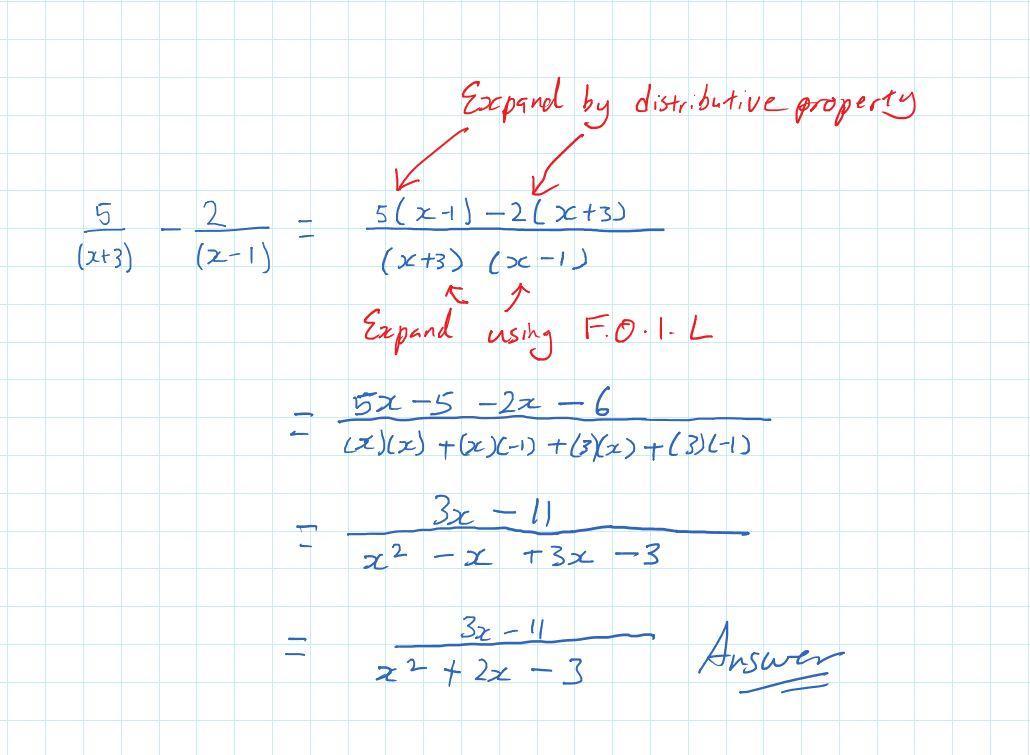 Expand by distributive property
5/(x+3) − 2/(x−1) = 5(x−1) −2(x+3) / (x+3) (x−1)
Expand using F.O.I.L
= 5x −5 −2x −6 / (x)(x) +(x)(-1) +(3)(x) +(3)(-1)
= 3x − 11 / x² − x + 3x − 3
= 3x − 11 / x² + 2x − 3 Answer